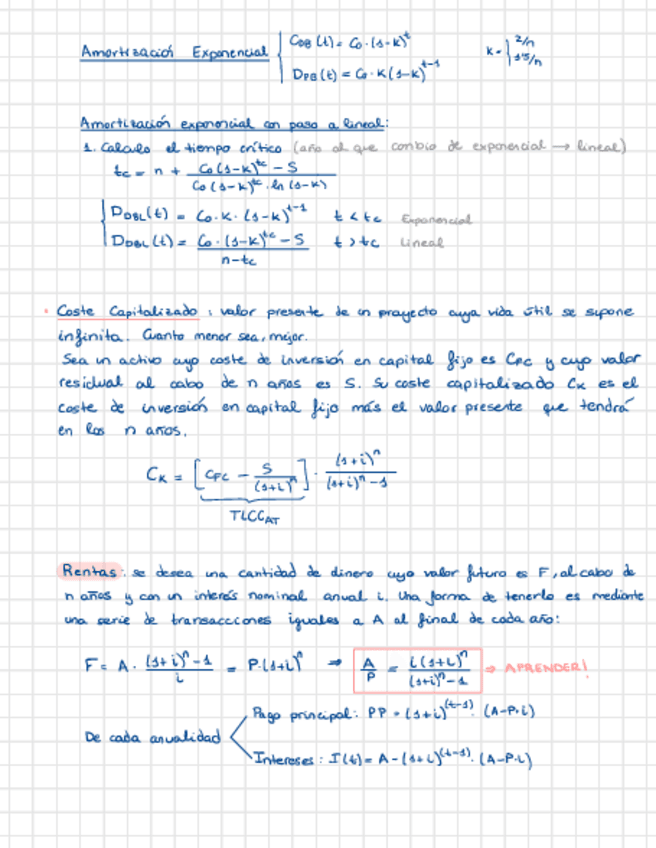 Amortización Exponencial { C_DB(t) = C₀·(1-k)^t    k = { 2/n
D_PB(t) = C₀·k(1-k)^(t-1)    1'5/n
Amortización exponencial con paso a lineal:
1. Calculo el tiempo crítico (año al que cambio de exponencial → lineal)
tc = n + (C₀(1-k)^tc - S) / (C₀(1-k)^tc · ln(1-k))
{ D_DBL(t) = C₀·k·(1-k)^(t-1)    t < tc    Exponencial
D_DBL(t) = (C₀·(1-k)^tc - S) / (n-tc)    t > tc    Lineal
· Coste Capitalizado: valor presente de un proyecto cuya vida útil se supone
infinita. Cuanto menor sea, mejor.
Sea un activo cuyo coste de inversión en capital fijo es C_FC y cuyo valor
residual al cabo de n años es S. Su coste capitalizado C_K es el
coste de inversión en capital fijo más el valor presente que tendrá
en los n años.
C_K = [C_FC - S/(1+i)^n] · (1+i)^n / ((1+i)^n - 1)
TLCC_AT
Rentas: se desea una cantidad de dinero cuyo valor futuro es F, al cabo de
n años y con un interés nominal anual i. Una forma de tenerlo es mediante
una serie de transacciones iguales a A al final de cada año:
F = A · ((1+i)^n - 1)/i = P·(1+i)^n ⇒ A/P = i(1+i)^n / ((1+i)^n - 1) ⇒ APRENDER!
Pago principal: PP = (1+i)^(t-1) · (A-P·i)
De cada anualidad <
Intereses: I(t) = A - (1+i)^(t-1) · (A-P·i)